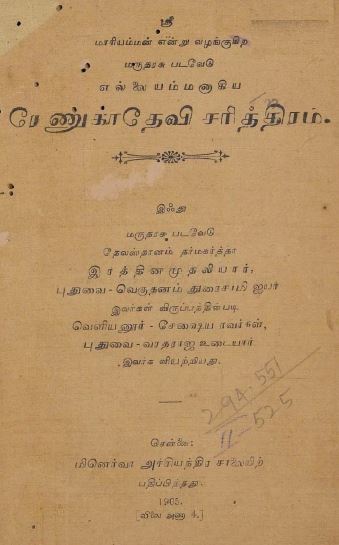 ஸ்ரீ
மாரியம்மன் என்று வழங்குகிற
மருதரசு படவேடு
எல்லையம்மனாகிய
ரேணுகாதேவி சரித்திரம்.
இஃது
மருதரசு படவேடு
தேவஸ்தானம் தர்மகர்த்தா
இரத்தினமுதலியார்,
புதுவை-வெகுதனம் துரைசாமி ஐயர்
இவர்கள் விருப்பத்தின்படி
வெளியனூர்-சேஷைய ரவர்கள்,
புதுவை-வரதராஜ உடையார்
இவர்க ளியற்றியது.
294.551
II-525
சென்னை:
மினெர்வா அச்சியந்திர சாலையிற்
பதிப்பித்தது.
1905.
[விலை அணா 4.]